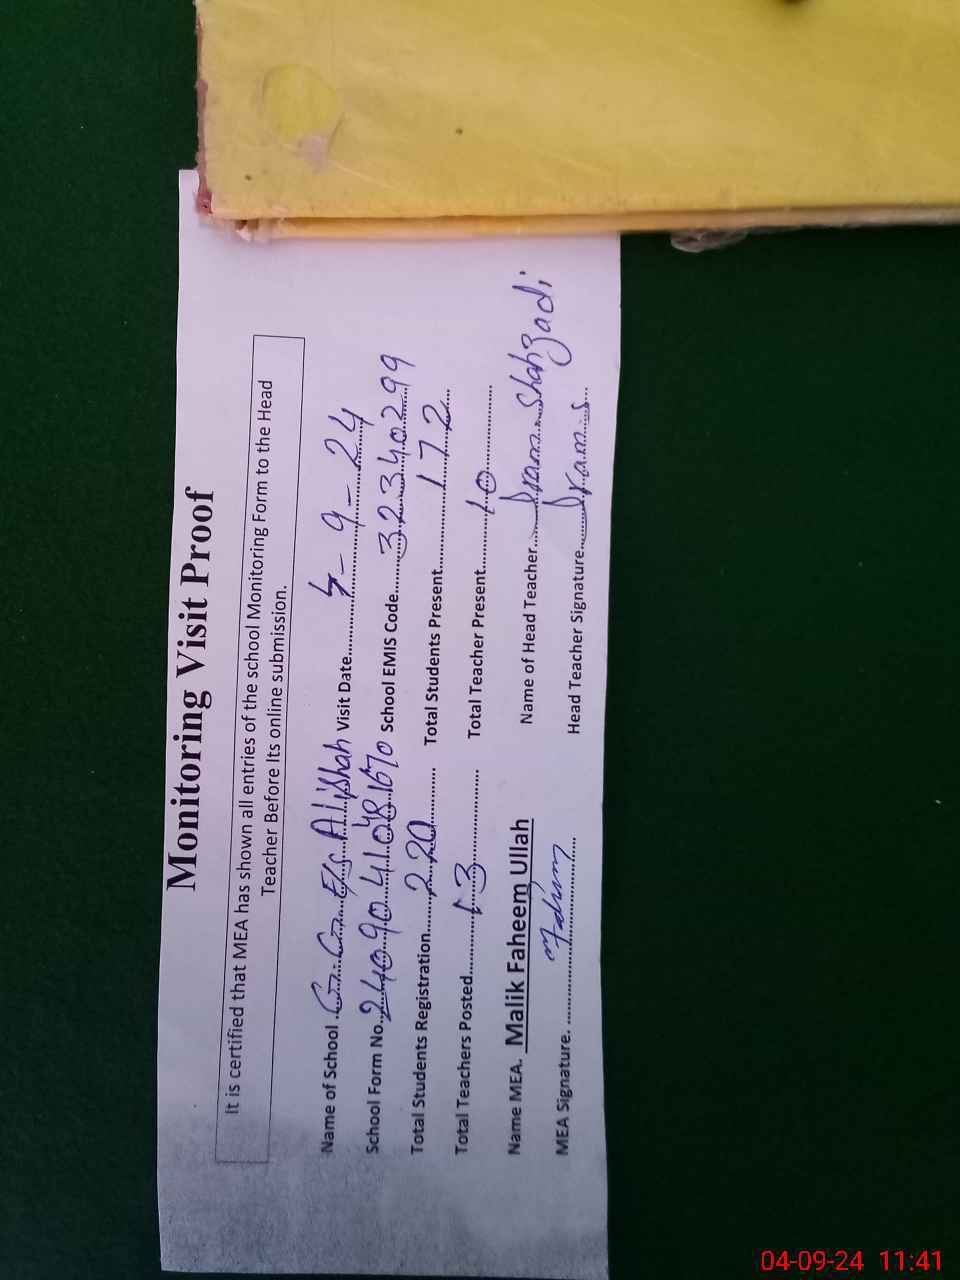 Monitoring Visit Proof
It is certified that MEA has shown all entries of the school Monitoring Form to the Head
Teacher Before Its online submission.
Name of School G. G. E/s Alishah Visit Date 4-9-24
School Form No. School EMIS Code 32340299
Total Students Registration 220 Total Students Present 172
Total Teachers Posted 13 Total Teacher Present 10
Name MEA. Malik Faheem Ullah Name of Head Teacher Iram Shahzadi
MEA Signature. Head Teacher Signature Iram.s
04-09-24 11:41